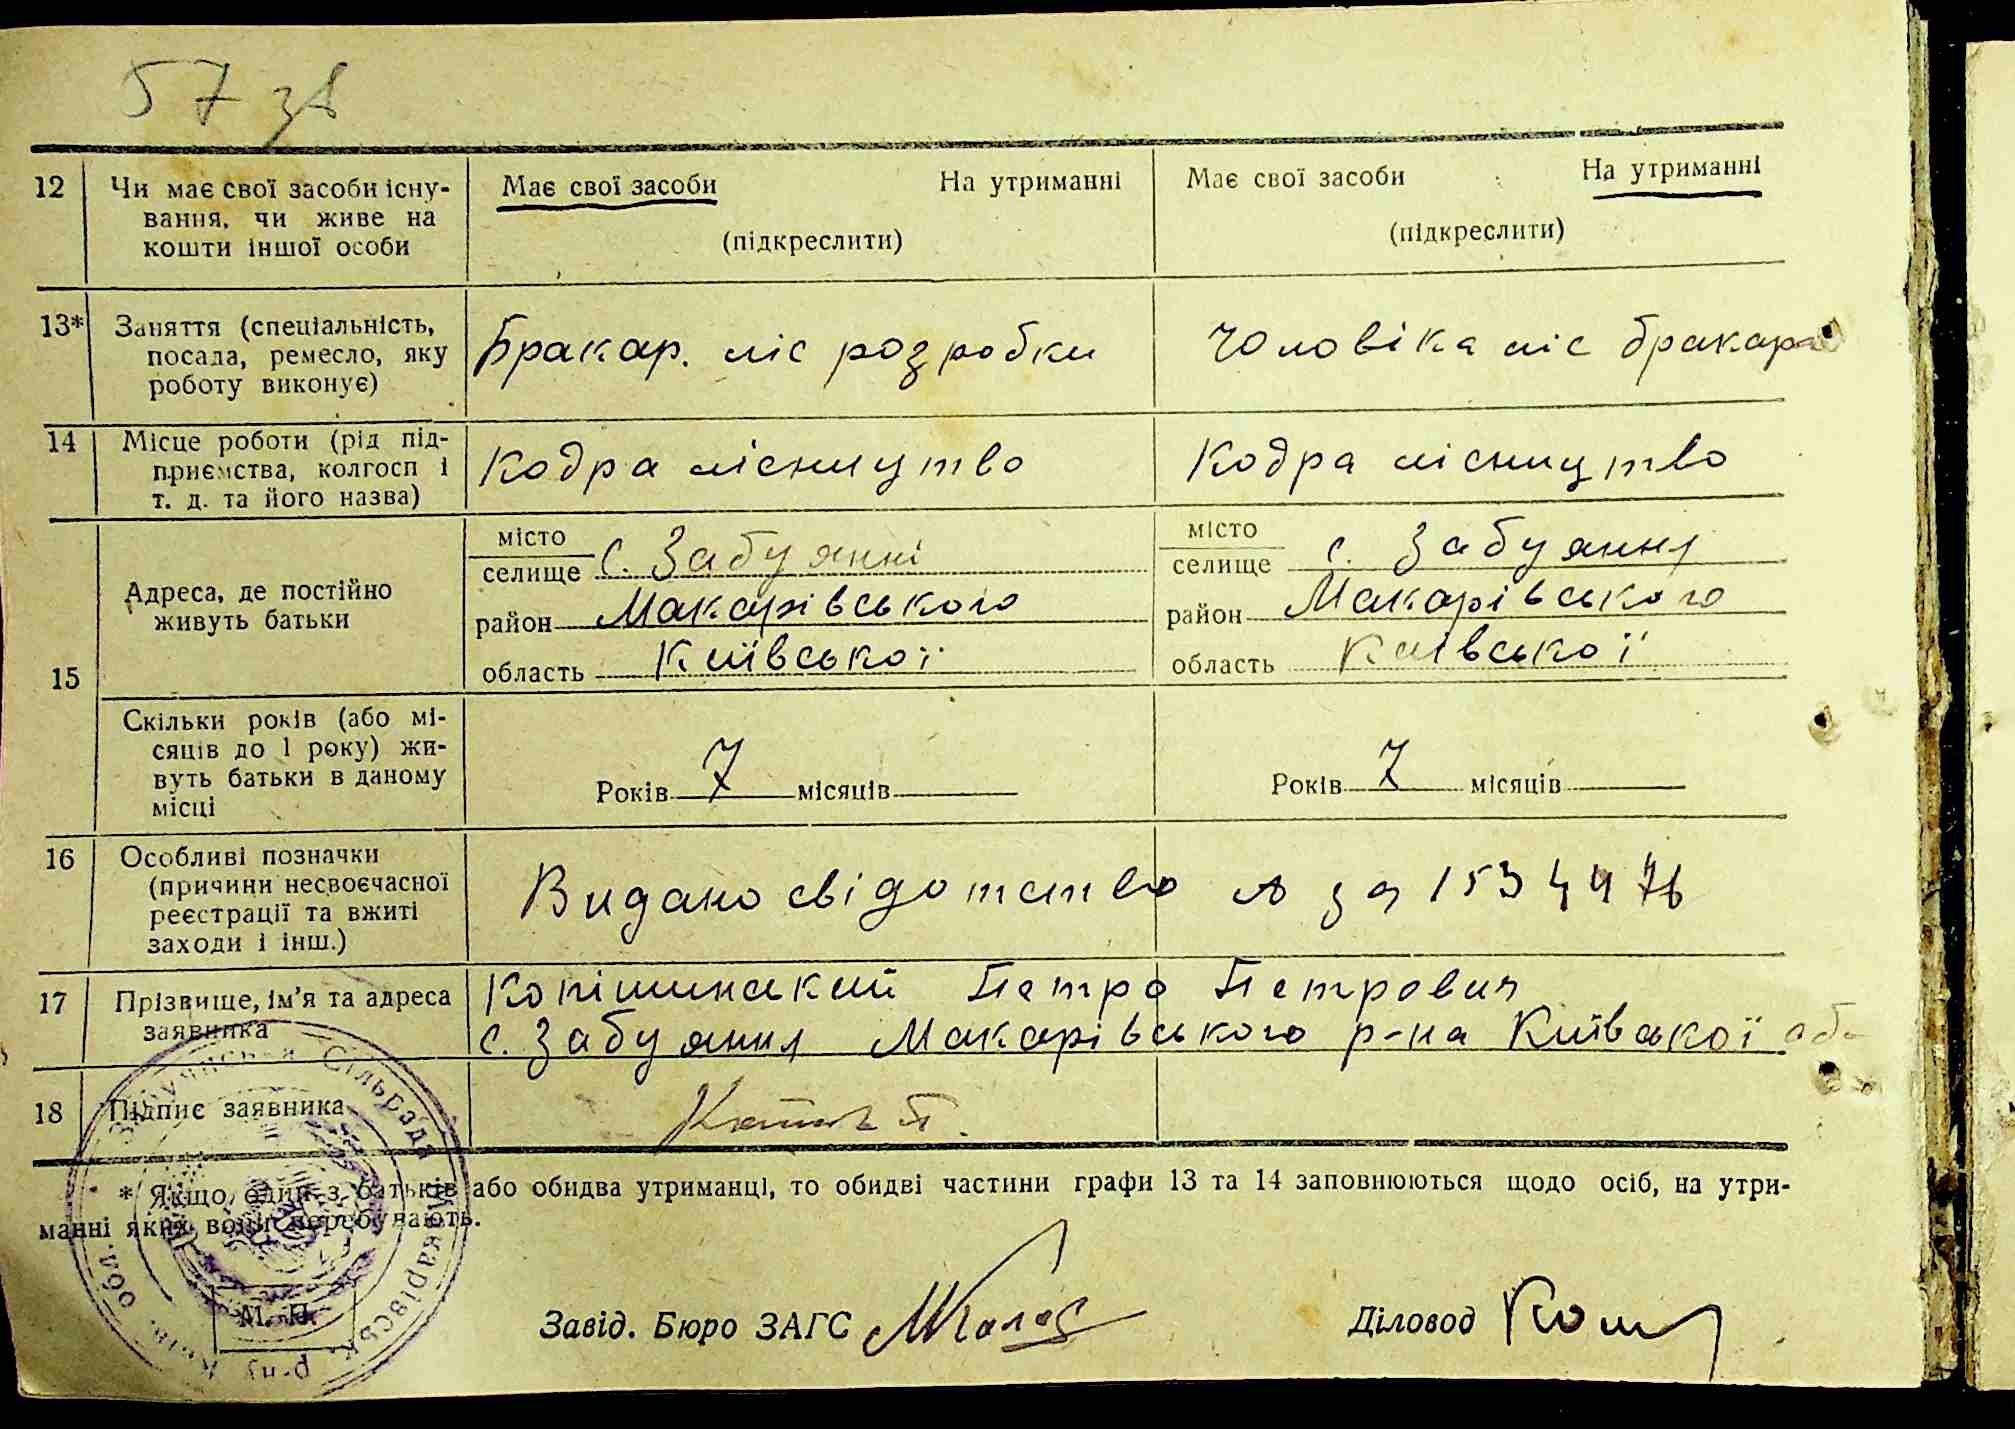 57 зв
12 Чи має свої засоби існу- Має свої засоби На утриманні Має свої засоби На утриманні
вання, чи живе на
кошти іншої особи (підкреслити) (підкреслити)
13* Заняття (спеціальність,
посада, ремесло, яку Бракар. ліс розробки Чоловіка ліс бракара
роботу виконує)
14 Місце роботи (рід під-
приємства, колгосп і Кодра лісництво Кодра лісництво
т. д. та його назва)
15 Адреса, де постійно
живуть батьки
місто
селище с. Забуянні
район Макарівського
область Київської
місто
селище с. Забуяння
район Макарівського
область Київської
Скільки років (або мі-
сяців до 1 року) жи-
вуть батьки в даному
місці
Років 7 місяців
Років 7 місяців
16 Особливі позначки
(причини несвоєчасної
реєстрації та вжиті
заходи і інш.)
Видано свідотство
17 Прізвище, ім'я та адреса
заявника
Копішинський Петро Петрович
с. Забуяння Макарівського р-на Київської об
18 Підпис заявника
* Якщо один з батьків або обидва утриманці, то обидві частини графи 13 та 14 заповнюються щодо осіб, на утри-
манні яких вони перебувають.
Сільрада Макарівськ. р-ну Київ. обл.
М. П.
Завід. Бюро ЗАГС
Діловод